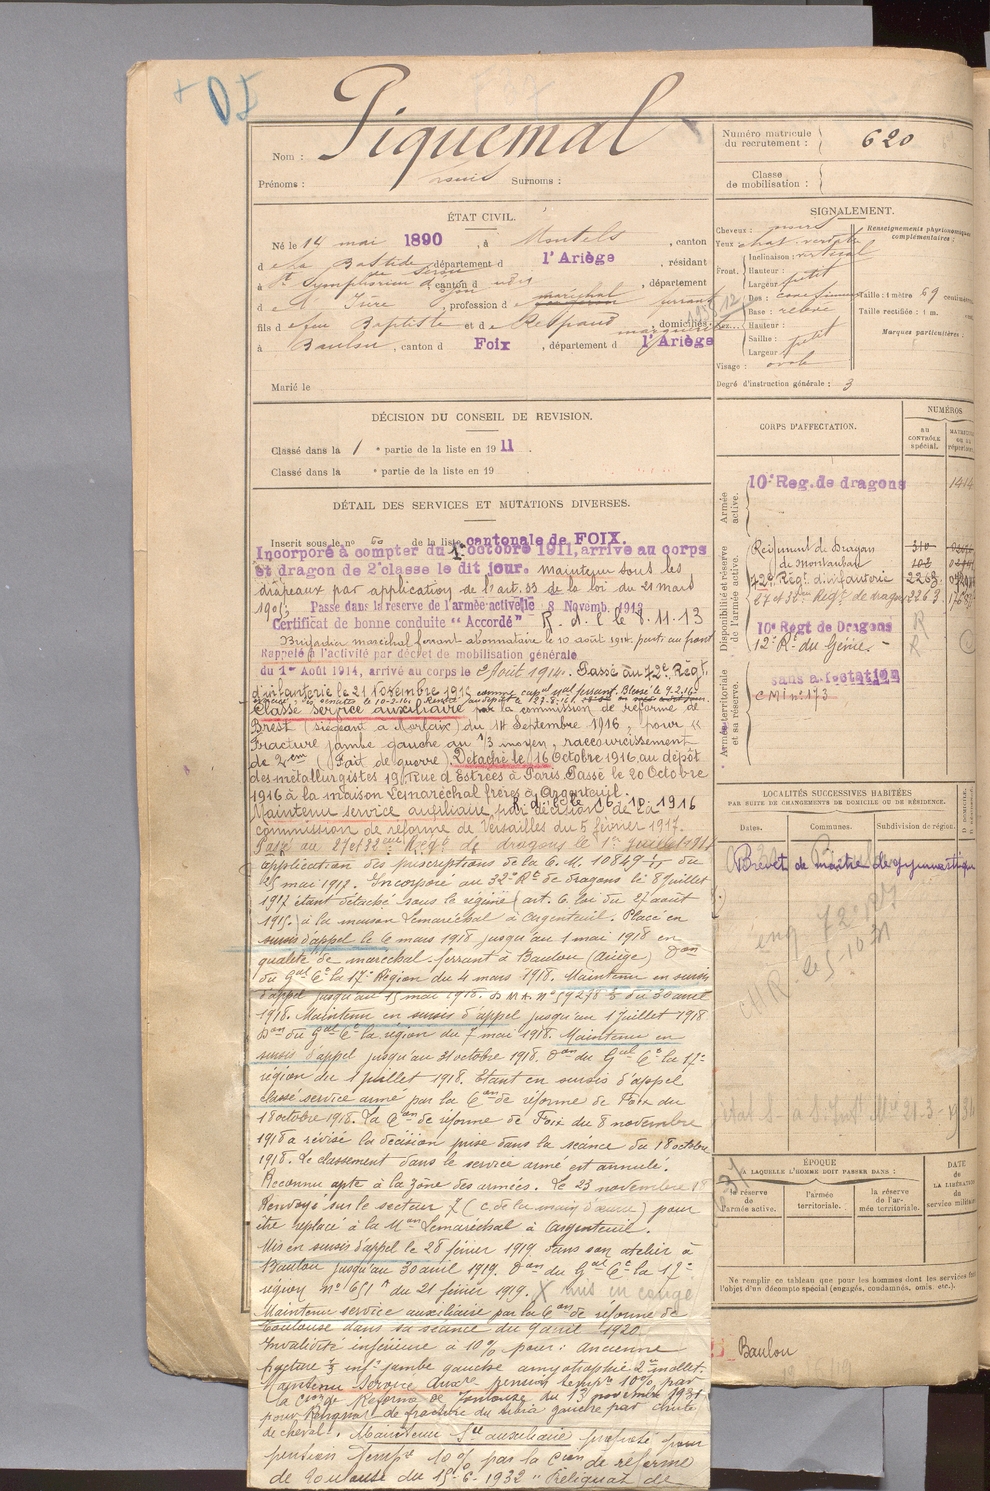 + DI
Nom : Piquemal
Prénoms : Louis Surnoms :
Numéro matricule du recrutement : 620
Classe de mobilisation :
ÉTAT CIVIL.
Né le 14 mai 1890, à Montels, canton
d e La Bastide de Sérou département d l'Ariège, résidant
à St Symphorien d'Ozon canton d udes, département
d e l'Isère, profession d e maréchal ferrant
fils d e feu Baptiste et d e Respaud marguerite domiciliés
à Baulou, canton d Foix, département d l'Ariège
Marié le
SIGNALEMENT.
Cheveux : noirs
Yeux chat. verdatre
Renseignements physionomiques complémentaires :
Front. Inclinaison : vertical
Hauteur :
Largeur petit
Nez. Dos :
Base : relevé
Hauteur :
Saillie : petit
Largeur
Visage : ovale
Taille : 1 mètre 69 centimètres
Taille rectifiée : 1 m.
Marques particulières :
Degré d'instruction générale : 3
DÉCISION DU CONSEIL DE REVISION.
Classé dans la 1e partie de la liste en 1911
Classé dans la e partie de la liste en 19
DÉTAIL DES SERVICES ET MUTATIONS DIVERSES.
Inscrit sous le no 60 de la liste cantonale de FOIX.
Incorporé à compter du 1er octobre 1911, arrivé au corps
et dragon de 2e classe le dit jour. Maintenu sous les
drapeaux par application de l'art. 33 de la loi du 21 mars
1905, Passé dans la réserve de l'armée active le 8 Novemb. 1913
Certificat de bonne conduite "Accordé" R. d. l. le 8.11.13
Brigadier maréchal ferrant abonnataire le 10 août 1914. parti au front
Rappelé à l'activité par décret de mobilisation générale
du 1er Août 1914, arrivé au corps le 3 Août 1914. Passé au 72e Régt
d'infanterie le 21 novembre 1915
Classé service auxiliaire par la commission de réforme de
Brest (siégeant à Morlaix) du 14 Septembre 1916, pour "
Fracture jambe gauche au 1/3 moyen, raccourcissement
de 2cm (Fait de guerre). Détaché le 16 Octobre 1916, au dépôt
des métallurgistes 19 Rue d'Estrées à Paris. Passé le 20 Octobre
1916 à la maison Lemaréchal frères à Argenteuil.
Maintenu service auxiliaire, par décision de la
commission de réforme de Versailles du 5 février 1917.
Passé au 27 et 32eme Régt de dragons le 1er Juillet 1917
application des prescriptions de la C. M. 10849 du
25 mai 1917. Incorporé au 32e Rt de dragons le 8 juillet
1917 étant détaché sous le régime (art. 6. loi du 17 août
1915.) à la maison Lemaréchal à Argenteuil. Placé en
sursis d'appel le 6 mars 1918 jusqu'au 1 mai 1918 en
qualité de maréchal-ferrant à Baulou (Ariège) Don
du Gal Ct la 17e Région du 4 mars 1918. Maintenu en sursis
d'appel jusqu'au 15 mai 1918. D. M. A. no 59278 du 30 avril
1918. Maintenu en sursis d'appel jusqu'au 1 Juillet 1918
Don du Gal Ct la région du 7 mai 1918. Maintenu en
sursis d'appel jusqu'au 31 octobre 1918. Don du Gal Ct la 17e
région du 1 Juillet 1918. Etant en sursis d'appel
classé service armé par la Con de réforme de Foix du
18 octobre 1918. La Con de réforme de Foix du 8 novembre
1918 a révisé la décision prise dans la séance du 18 octobre
1918. Le classement dans le service armé est annulé.
Reconnu apte à la zône des armées. Le 23 novembre 18
Renvoyé sur le secteur 7 (C. de la main d'œuvre) pour
être replacé à la Mon Lemaréchal à Argenteuil.
Mis en sursis d'appel le 28 février 1919 dans son atelier à
Baulou jusqu'au 30 avril 1919. Don du Gal Ct la 17e
région no 1651 A du 21 février 1919. X mis en congé
Maintenu service auxiliaire par la Con de réforme de
Toulouse dans sa séance du 9 avril 1920.
Invalidité inférieure à 10% pour : ancienne
fracture 1/3 infr jambe gauche amyotrophie 2cm mollet.
Maintenu Service Auxre pension tempre 10% par
la Con de Réforme de Toulouse du 13 novembre 1931
pour Reliquat de fracture du tibia gauche par chute
de cheval. Maintenu Sce auxiliaire proposé pour
pension Tempre 10% par la Con de réforme
de Toulouse du 15-6-1932 "Reliquat de
CORPS D'AFFECTATION.
NUMÉROS
AU CONTRÔLE SPÉCIAL.
Armée active.
10e Reg. de dragons 1414
Disponibilité et réserve de l'armée active.
Régiment de Dragons 310
de Montauban 102
72e Régt d'infanterie 2263
27 et 32e Régt de dragons 2263
10e Regt de Dragons R
12e Rt du Génie R
Armée territoriale et sa réserve.
sans affectation
C M I no 173
LOCALITÉS SUCCESSIVES HABITÉES
PAR SUITE DE CHANGEMENTS DE DOMICILE OU DE RÉSIDENCE.
Dates. Communes. Subdivision de région.
Brevet de maître de gymnastique
ÉPOQUE
À LAQUELLE L'HOMME DOIT PASSER DANS :
la réserve de l'armée active.
l'armée territoriale.
la réserve de l'armée territoriale.
DATE de LA LIBÉRATION du service militaire
Ne remplir ce tableau que pour les hommes dont les services font
l'objet d'un décompte spécial (engagés, condamnés, omis, etc.).
Baulou